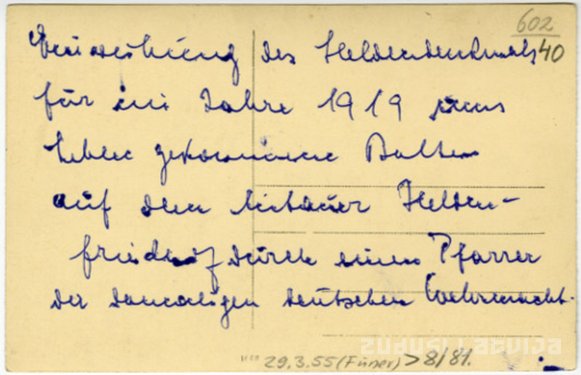 602
40
Einweihung des Heldendenkmals
für im Jahre 1919 ums
Leben gekommene Balten
auf dem Mitauer Helden-
friedhof durch einen Pfarrer
der damaligen deutschen Wehrmacht.
zudusilatvija
29.3.55 (Füner) > 8/81.